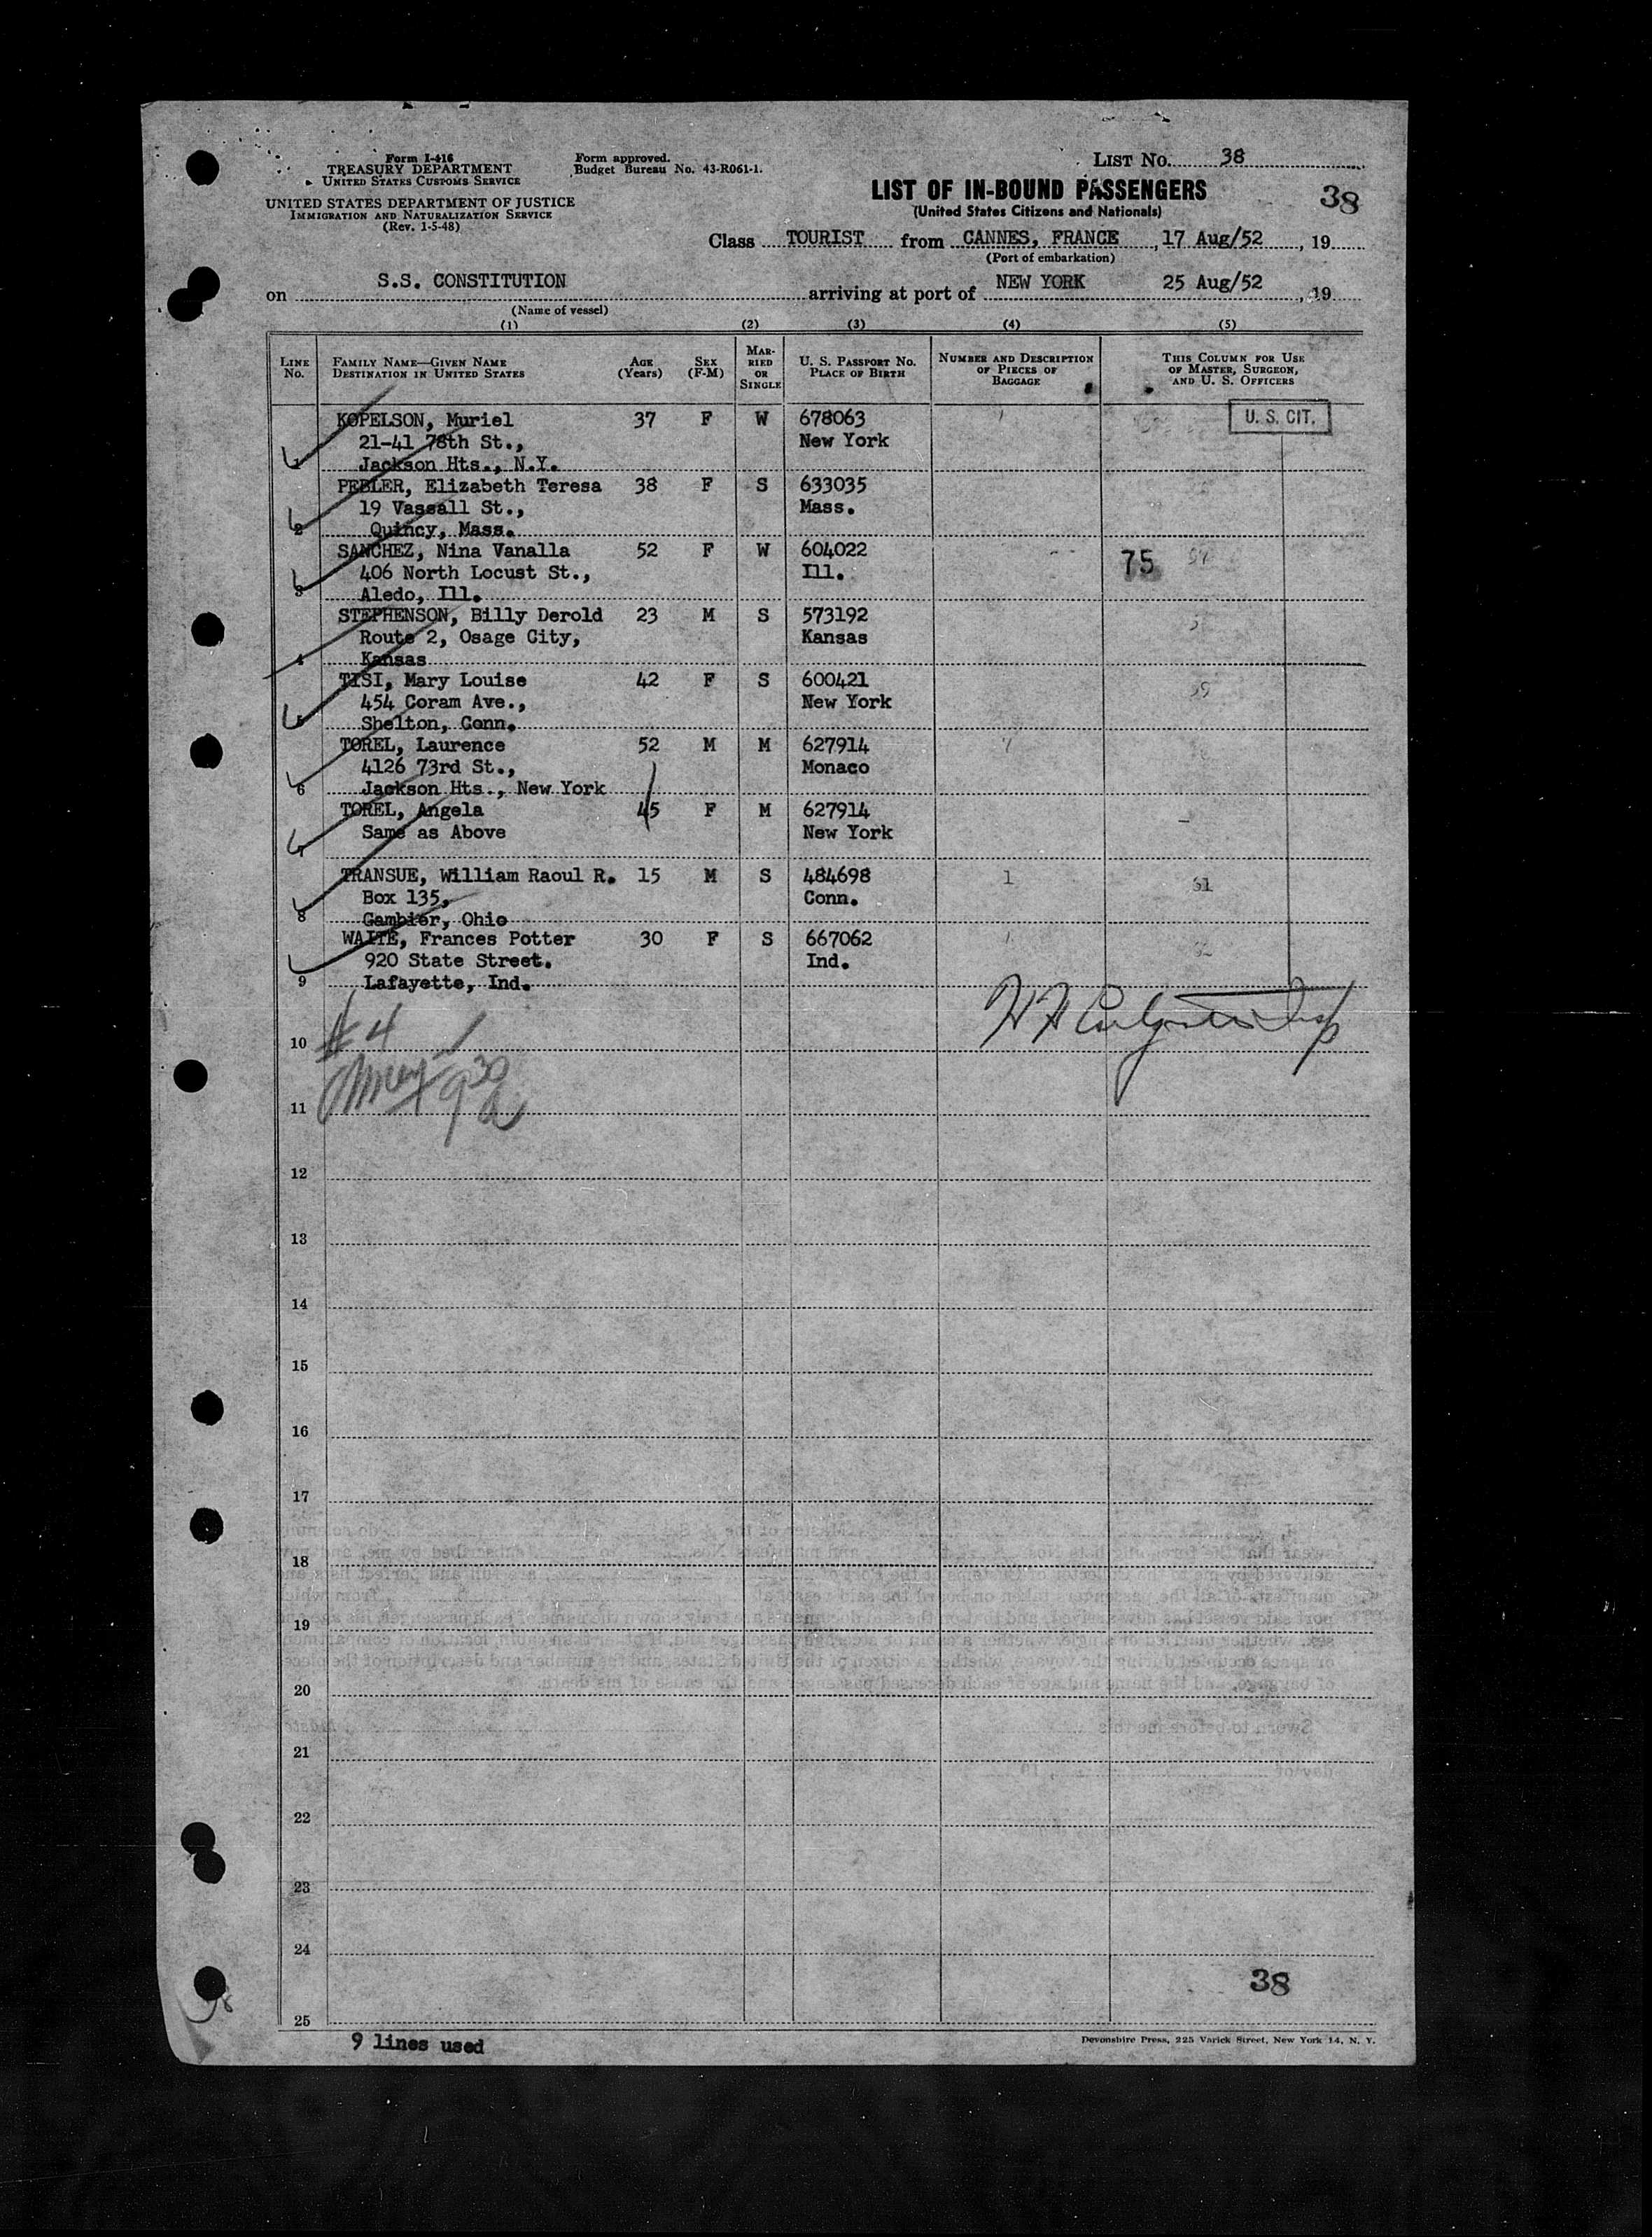 Form I-416
TREASURY DEPARTMENT
UNITED STATES CUSTOMS SERVICE
UNITED STATES DEPARTMENT OF JUSTICE
IMMIGRATION AND NATURALIZATION SERVICE
(Rev. 1-5-48)
Form approved.
Budget Bureau No. 43-R061-1.
LIST No. 38
LIST OF IN-BOUND PASSENGERS
(United States Citizens and Nationals)
38
Class TOURIST from CANNES, FRANCE, 17 Aug/52, 19
(Port of embarkation)
on S.S. CONSTITUTION arriving at port of NEW YORK 25 Aug/52, 19
(Name of vessel)
(1) (2) (3) (4) (5)
LINE No. FAMILY NAME—GIVEN NAME DESTINATION IN UNITED STATES AGE (Years) SEX (F-M) MARRIED OR SINGLE U. S. PASSPORT NO. PLACE OF BIRTH NUMBER AND DESCRIPTION OF PIECES OF BAGGAGE THIS COLUMN FOR USE OF MASTER, SURGEON, AND U. S. OFFICERS
KOPELSON, Muriel 37 F W 678063 U. S. CIT.
21-41 78th St., New York
1 Jackson Hts., N.Y.
PEBLER, Elizabeth Teresa 38 F S 633035
19 Vassall St., Mass.
2 Quincy, Mass.
SANCHEZ, Nina Vanalla 52 F W 604022
406 North Locust St., Ill. 75
3 Aledo, Ill.
STEPHENSON, Billy Derold 23 M S 573192
Route 2, Osage City, Kansas
4 Kansas
TISI, Mary Louise 42 F S 600421
454 Coram Ave., New York
5 Shelton, Conn.
TOREL, Laurence 52 M M 627914
4126 73rd St., Monaco
6 Jackson Hts., New York
TOREL, Angela 45 F M 627914
Same as Above New York
7
TRANSUE, William Raoul R. 15 M S 484698 1 61
Box 135, Conn.
8 Gambier, Ohio
WAITE, Frances Potter 30 F S 667062
920 State Street. Ind.
9 Lafayette, Ind.
# 4
10
9 30
11
12
13
14
15
16
17
18
19
20
21
22
23
24
38
25
9 lines used
Devonshire Press, 225 Varick Street, New York 14, N. Y.